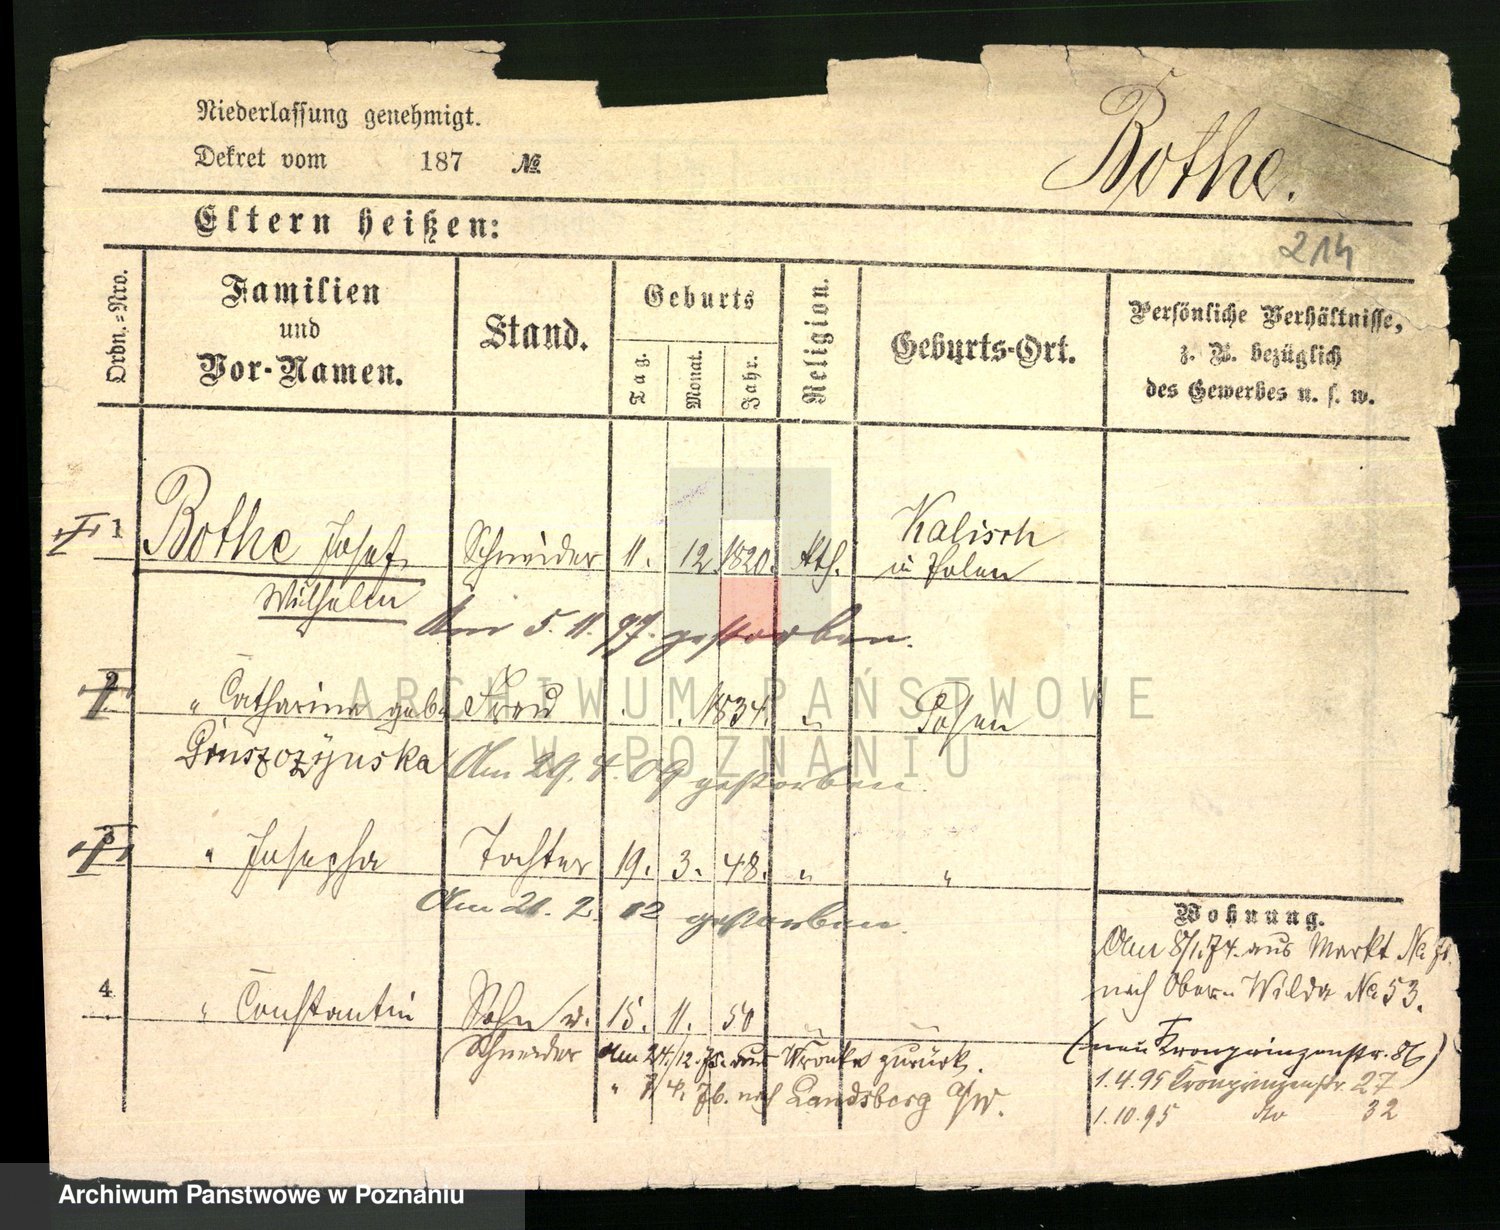 Niederlassung genehmigt.
Dekret vom 187 №
Bothe.
Eltern heißen:
214
Ordn.-Nro.
Familien
und
Vor-Namen.
Stand.
Geburts
Tag.
Monat.
Jahr.
Religion.
Geburts-Ort.
Persönliche Verhältnisse,
z. B. bezüglich
des Gewerbes u. s. w.
1 Bothe Josef Schneider 11. 12. 1820. kth. Kalisch
Wilhelm in Polen
Am 5. 11. 97. gestorben.
2 " Catharina geb. Frau 1834. " Posen
Gruszczynska Am 29. 4. 09 gestorben.
3 " Josepha Tochter 19. 3. 48. " "
Am 21. 2. 12 gestorben.
4 " Constantin Sohn u. 15. 11. 50 " "
Schneider Am 24./12. 75. aus Wronke zurück.
" 7/4. 76. nach Landsberg a/W.
Wohnung.
Am 8/1.74. aus Markt No
nach Obere Wilda No 53.
(neu Kronprinzenstr. 86)
1.4.95 Kronprinzenstr. 27
1.10.95 do 32
ARCHIWUM PAŃSTWOWE
W POZNANIU
Archiwum Państwowe w Poznaniu